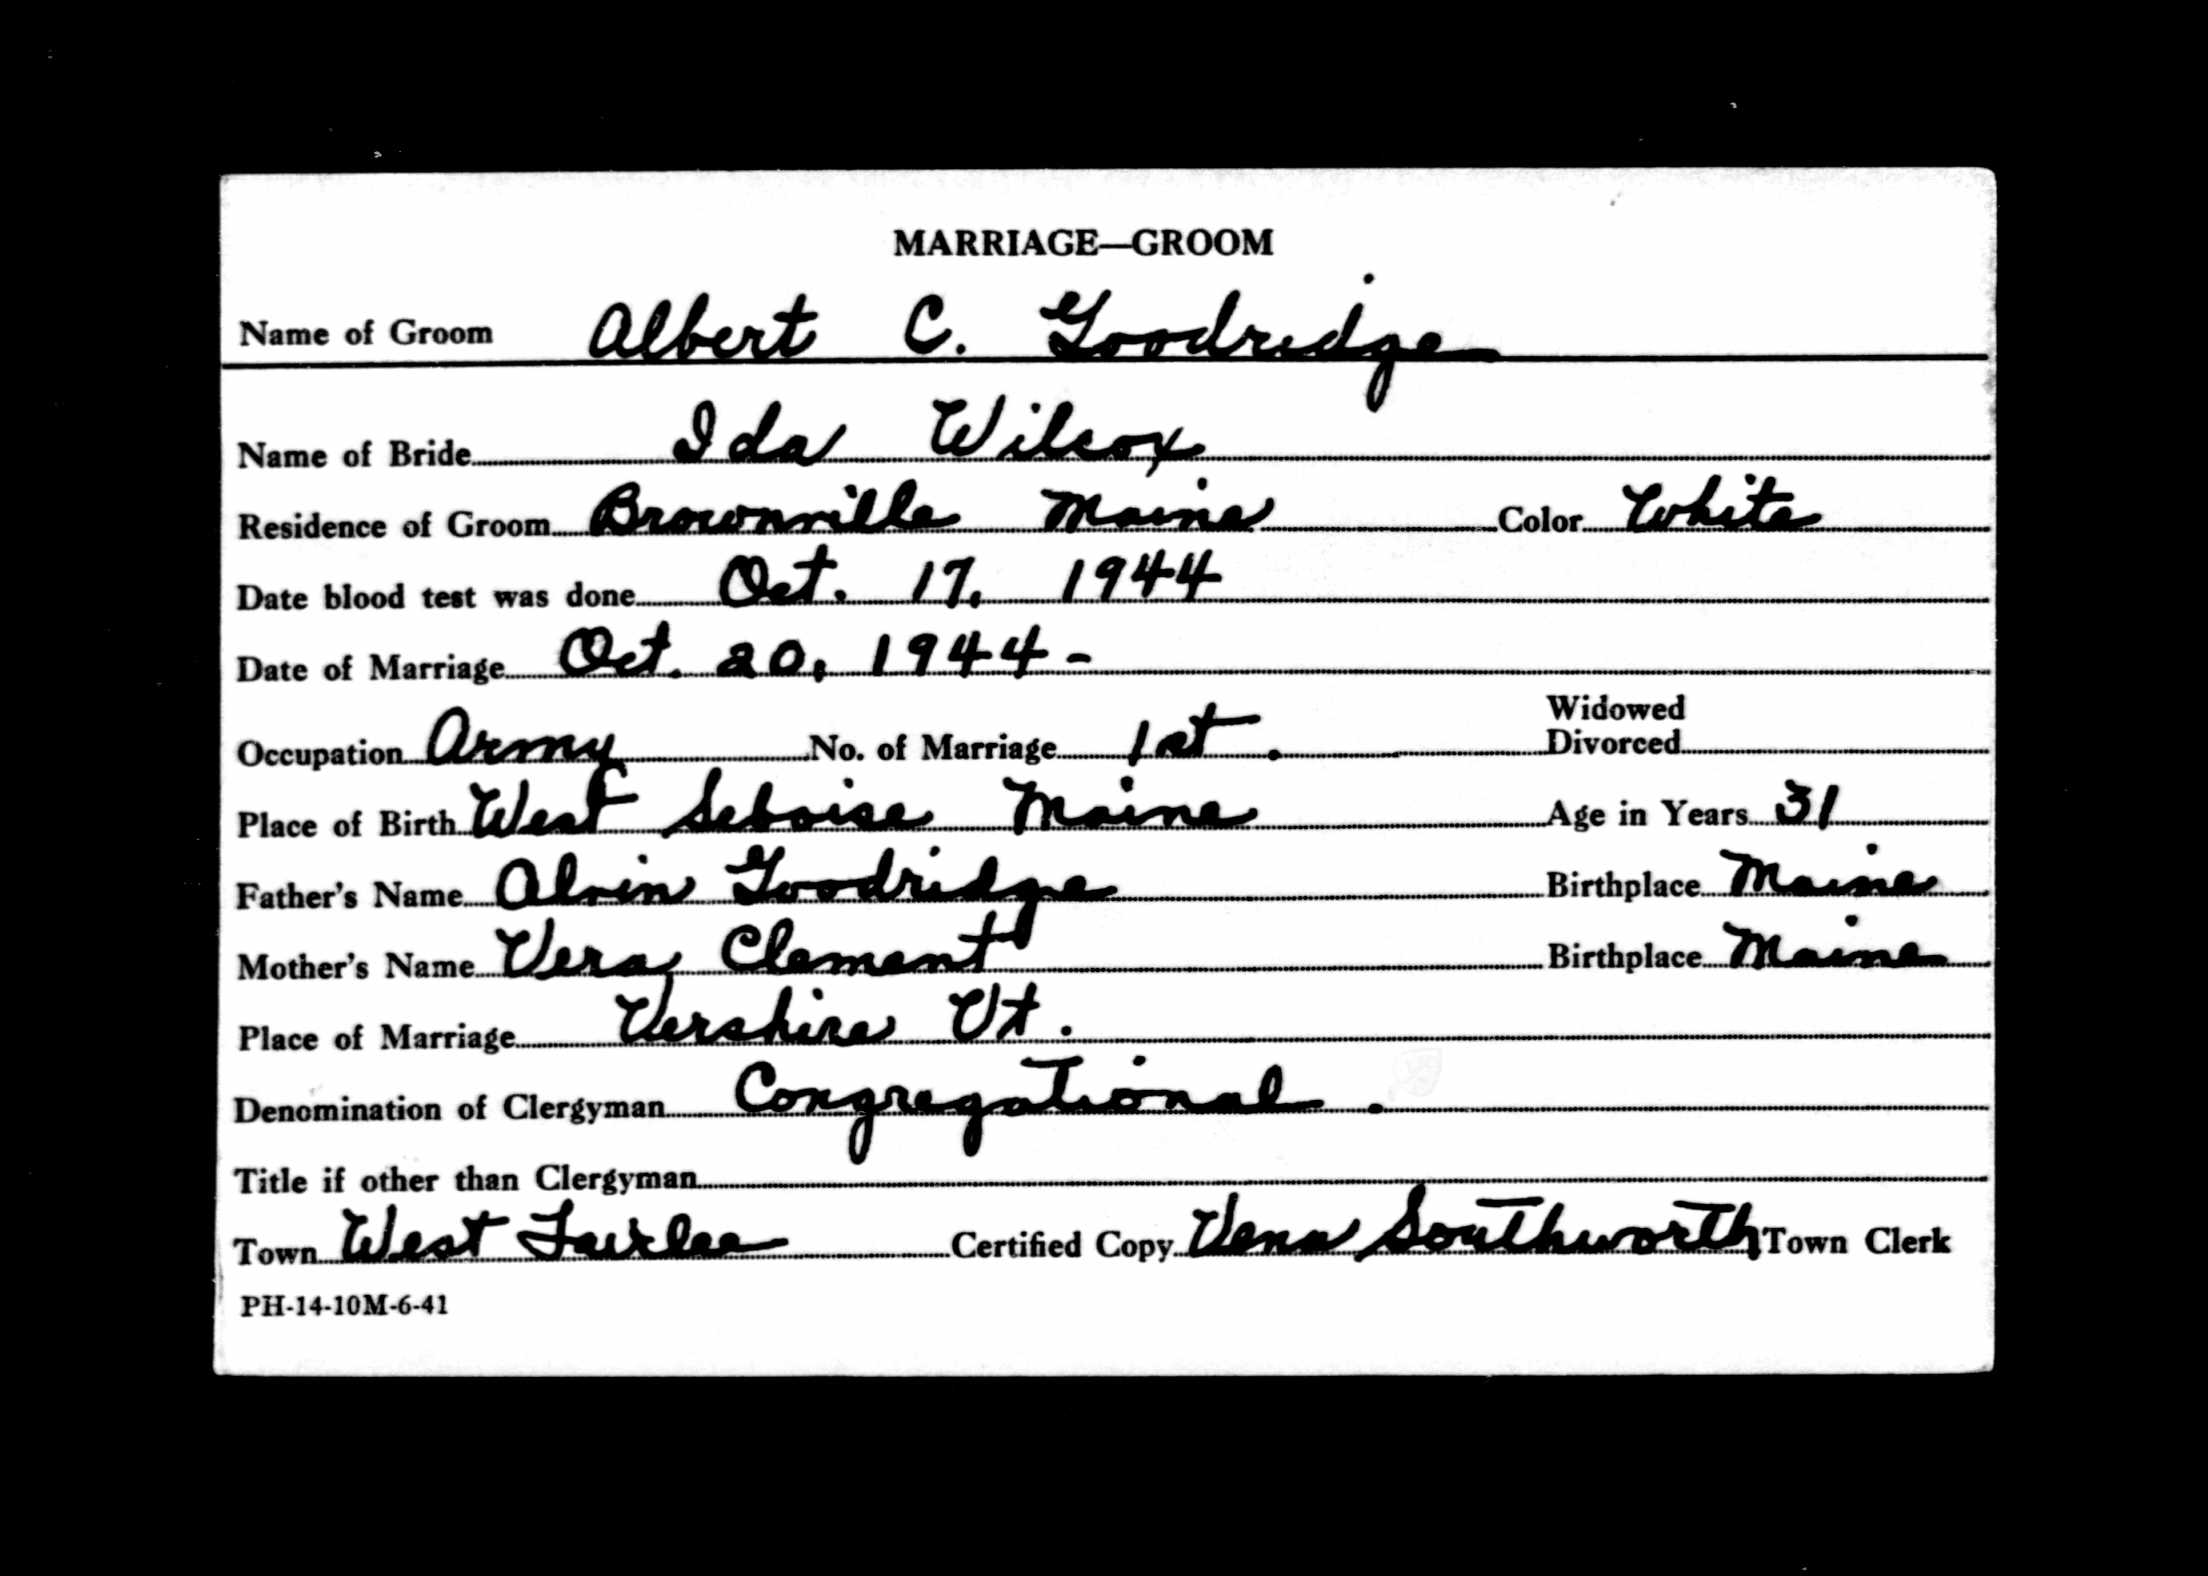 MARRIAGE—GROOM
Name of Groom Albert C. Goodridge
Name of Bride Ida Wilcox
Residence of Groom Brownville Maine Color White
Date blood test was done Oct. 17, 1944
Date of Marriage Oct. 20, 1944-
Occupation Army No. of Marriage 1st. Widowed Divorced
Place of Birth West Seboise Maine Age in Years 31
Father's Name Alvin Goodridge Birthplace Maine
Mother's Name Vera Clement Birthplace Maine
Place of Marriage Vershire Vt.
Denomination of Clergyman Congregational.
Title if other than Clergyman
Town West Fairlee Certified Copy Vena Southworth Town Clerk
PH-14-10M-6-41